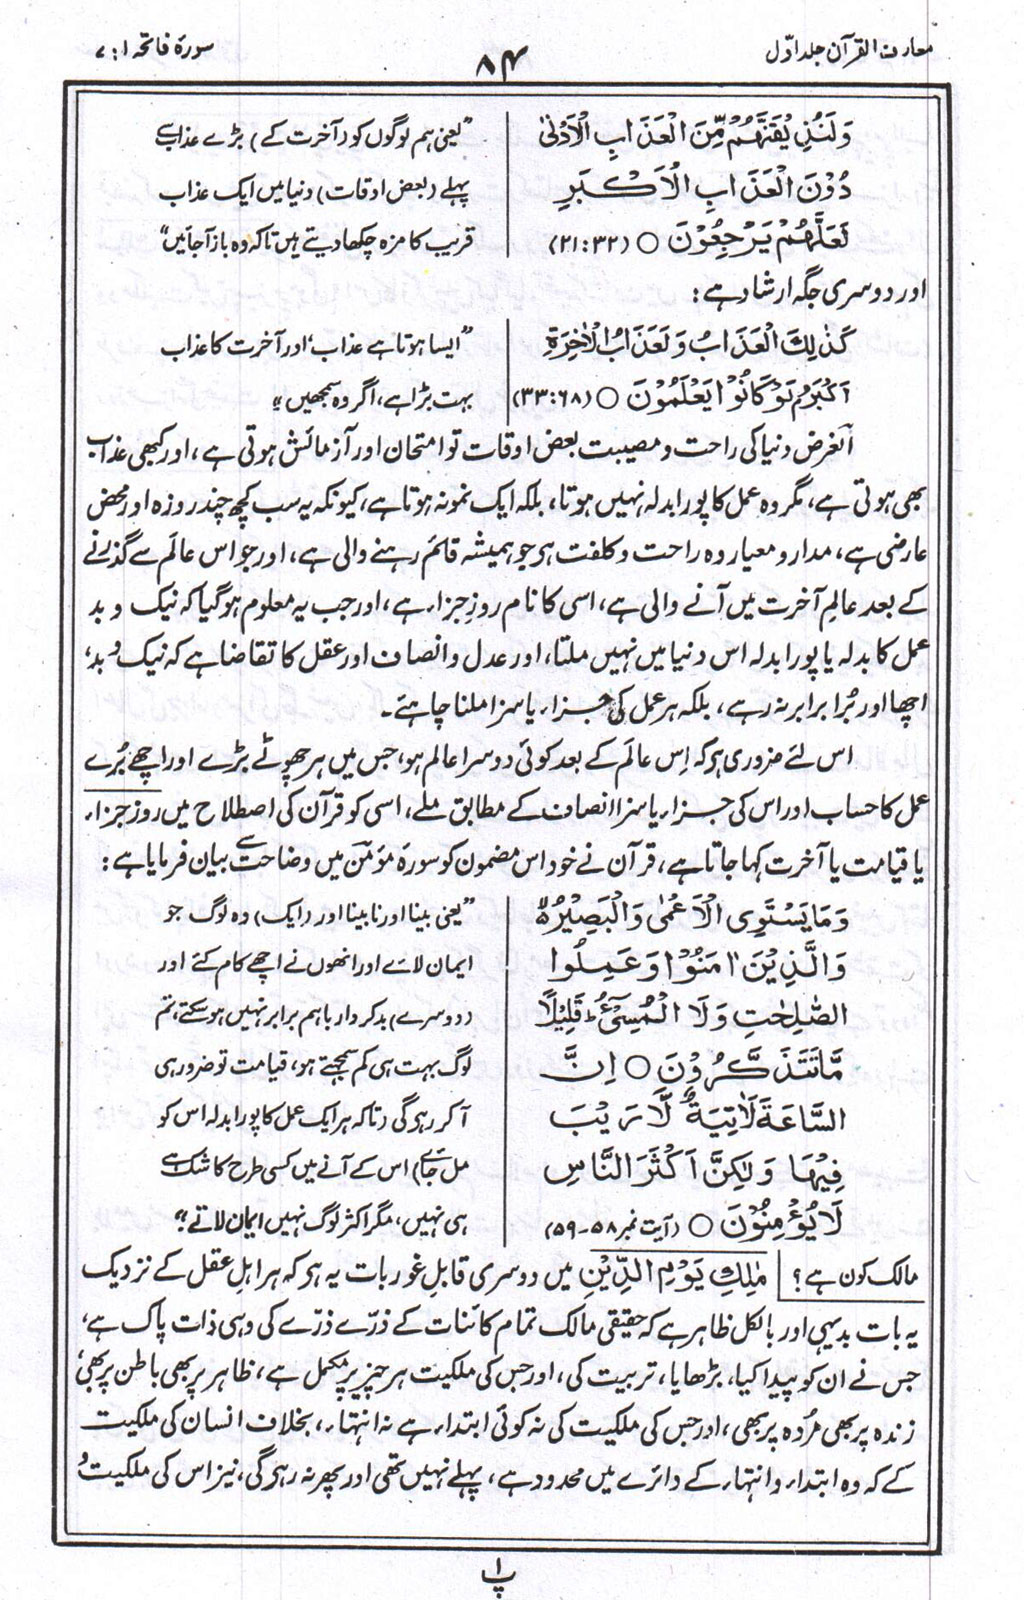 معارف القرآن جلد اوّل
۸۴
سورۂ فاتحہ ۱ : ۷
وَلَنُذِیْقَنَّهُمْ مِّنَ الْعَذَابِ الْاَدْنٰی
دُوْنَ الْعَذَابِ الْاَكْبَرِ
لَعَلَّهُمْ یَرْجِعُوْنَ ○ (۲۱:۳۲)
”یعنی ہم لوگوں کو (آخرت کے) بڑے عذاب سے
پہلے (بعض اوقات) دنیا میں ایک عذاب
قریب کا مزہ چکھا دیتے ہیں تاکہ وہ باز آجائیں“
اور دوسری جگہ ارشاد ہے :
كَذٰلِكَ الْعَذَابُ وَلَعَذَابُ الْاٰخِرَةِ
اَكْبَرُ م لَوْ كَانُوْا یَعْلَمُوْنَ ○ (۳۳:۶۸)
”ایسا ہوتا ہے عذاب، اور آخرت کا عذاب
بہت بڑا ہے، اگر وہ سمجھیں“
الغرض دنیا کی راحت و مصیبت بعض اوقات تو امتحان اور آزمائش ہوتی ہے، اور کبھی عذاب
بھی ہوتی ہے، مگر وہ عمل کا پورا بدلہ نہیں ہوتا، بلکہ ایک نمونہ ہوتا ہے، کیونکہ یہ سب کچھ چند روزہ اور محض
عارضی ہے، مدار و معیار وہ راحت و کلفت ہی جو ہمیشہ قائم رہنے والی ہے، اور جو اس عالَم سے گذرنے
کے بعد عالمِ آخرت میں آنے والی ہے، اسی کا نام روزِ جزاء ہے، اور جب یہ معلوم ہو گیا کہ نیک و بد
عمل کا بدلہ یا پورا بدلہ اس دنیا میں نہیں ملتا، اور عدل و انصاف اور عقل کا تقاضا ہے کہ نیک و بد،
اچھا اور بُرا برابر نہ رہے، بلکہ ہر عمل کی جزاء یا سزا ملنا چاہئے۔
اس لئے ضروری ہے کہ اِس عالَم کے بعد کوئی دوسرا عالم ہو، جس میں ہر چھوٹے بڑے اور اچھے بُرے
عمل کا حساب اور اس کی جزاء یا سزا انصاف کے مطابق ملے، اسی کو قرآن کی اصطلاح میں روز جزاء
یا قیامت یا آخرت کہا جاتا ہے، قرآن نے خود اس مضمون کو سورۂ مؤمن میں وضاحت سے بیان فرمایا ہے :
وَمَا یَسْتَوِی الْاَعْمٰی وَالْبَصِیْرُ
وَالَّذِیْنَ اٰمَنُوْا وَعَمِلُوا
الصّٰلِحٰتِ وَلَا الْمُسِیْٓءُ ؕ قَلِیْلًا
مَّا تَتَذَكَّرُوْنَ ○ اِنَّ
السَّاعَةَ لَاٰتِیَةٌ لَّا رَیْبَ
فِیْهَا وَلٰكِنَّ اَكْثَرَ النَّاسِ
لَا یُؤْمِنُوْنَ ○ (آیت نمبر ۵۸-۵۹)
”یعنی بینا اور نابینا اور (ایک) وہ لوگ جو
ایمان لائے اور انھوں نے اچھے کام کئے اور
(دوسرے) بدکردار باہم برابر نہیں ہو سکتے، تم
لوگ بہت ہی کم سمجھتے ہو، قیامت تو ضرور ہی
آکر رہی گی (تاکہ ہر ایک عمل کا پورا بدلہ اس کو
مل جائے) اس کے آنے میں کسی طرح کا شک ہے
ہی نہیں، مگر اکثر لوگ نہیں ایمان لاتے“
مالک کون ہے؟ مٰلِكِ یَوْمِ الدِّیْنِ میں دوسری قابلِ غور بات یہ ہی کہ ہر اہلِ عقل کے نزدیک
یہ بات بدیہی اور بالکل ظاہر ہے کہ حقیقی مالک تمام کائنات کے ذرّے ذرّے کی وہی ذات پاک ہے،
جس نے ان کو پیدا کیا، بڑھایا، تربیت کی، اور جس کی ملکیت ہر چیز پر مکمل ہے، ظاہر پر بھی باطن پر بھی،
زندہ پر بھی مُردہ پر بھی، اور جس کی ملکیت کی نہ کوئی ابتداء ہے نہ انتہاء، بخلاف انسان کی ملکیت
کے کہ وہ ابتداء و انتہاء کے دائرے میں محدود ہے، پہلے نہیں تھی اور پھر نہ رہی گی، نیز اس کی ملکیت و